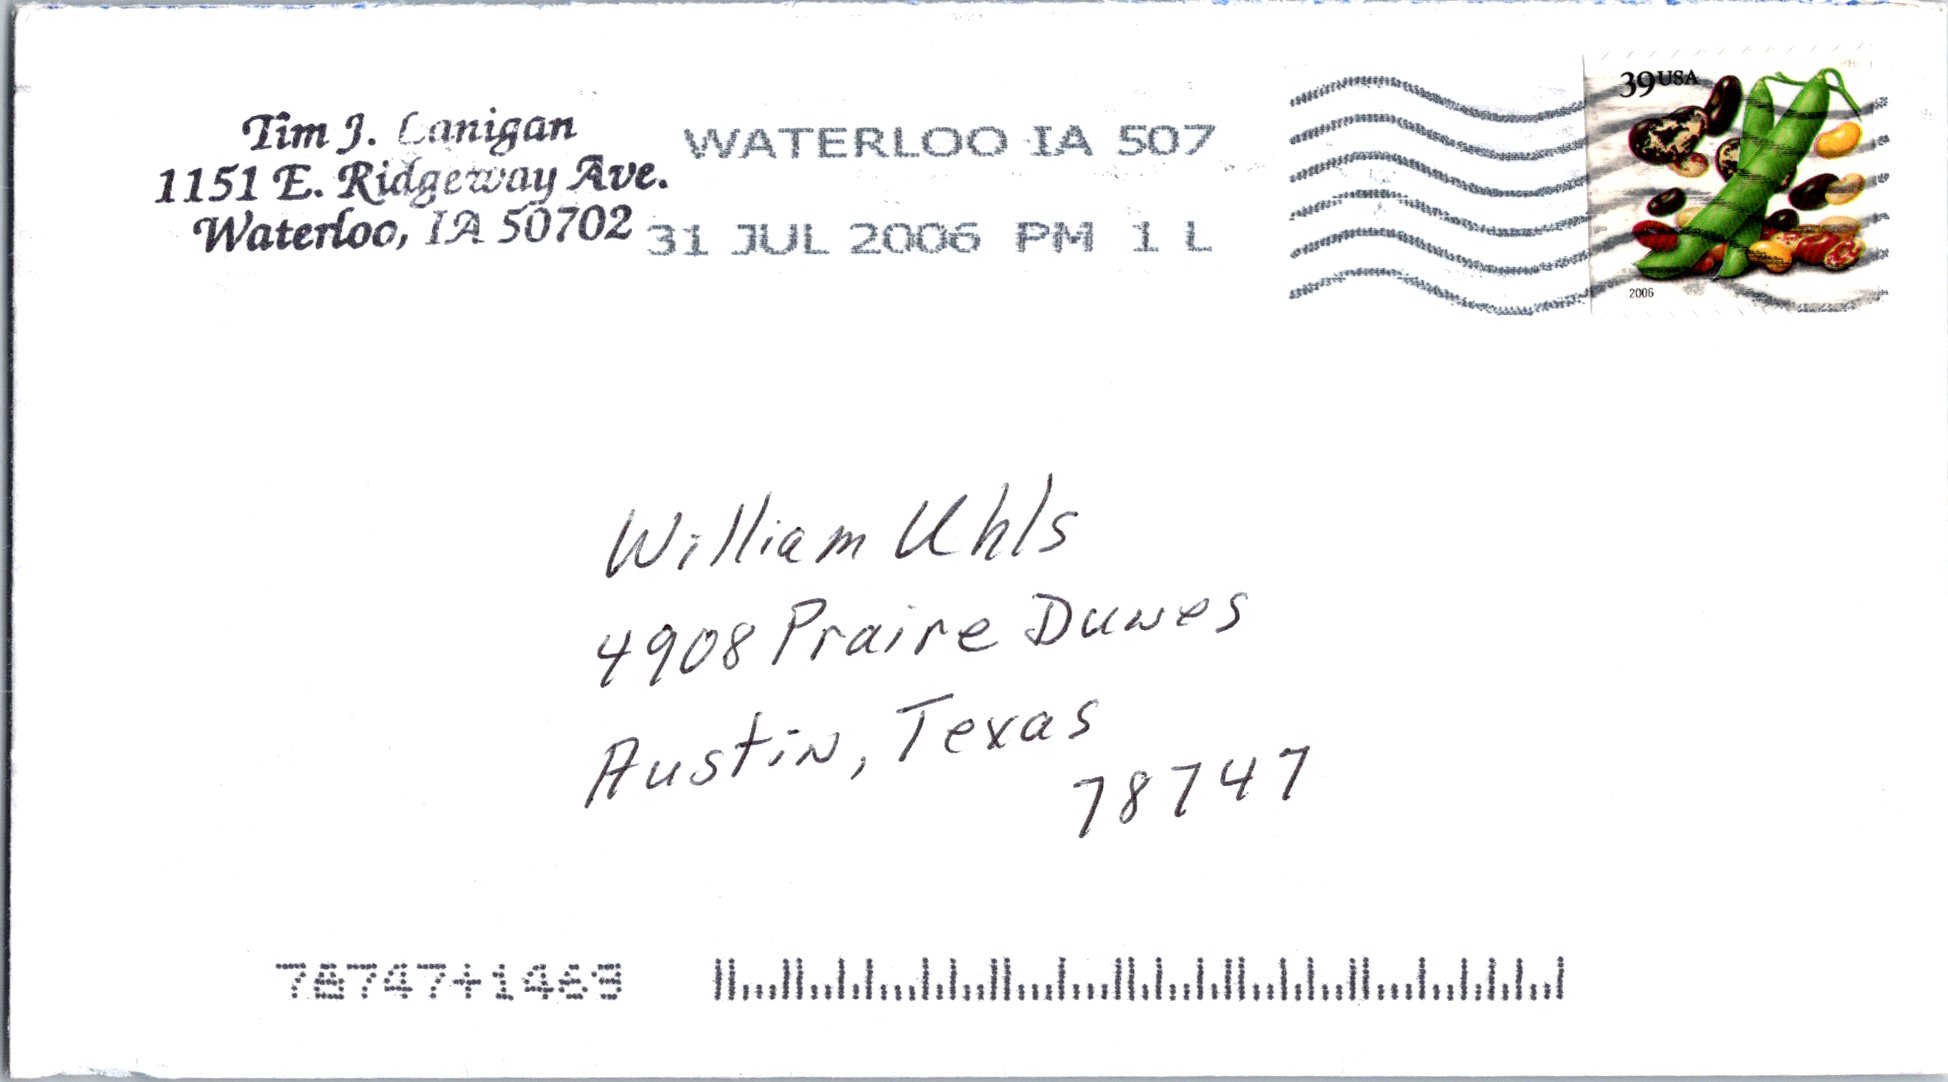 Tim J. Lanigan
1151 E. Ridgeway Ave.
Waterloo, IA 50702
WATERLOO IA 507
31 JUL 2006 PM 1 L
39 USA
2006
William Uhls
4908 Praire Dunes
Austin, Texas
78747
78747+1463